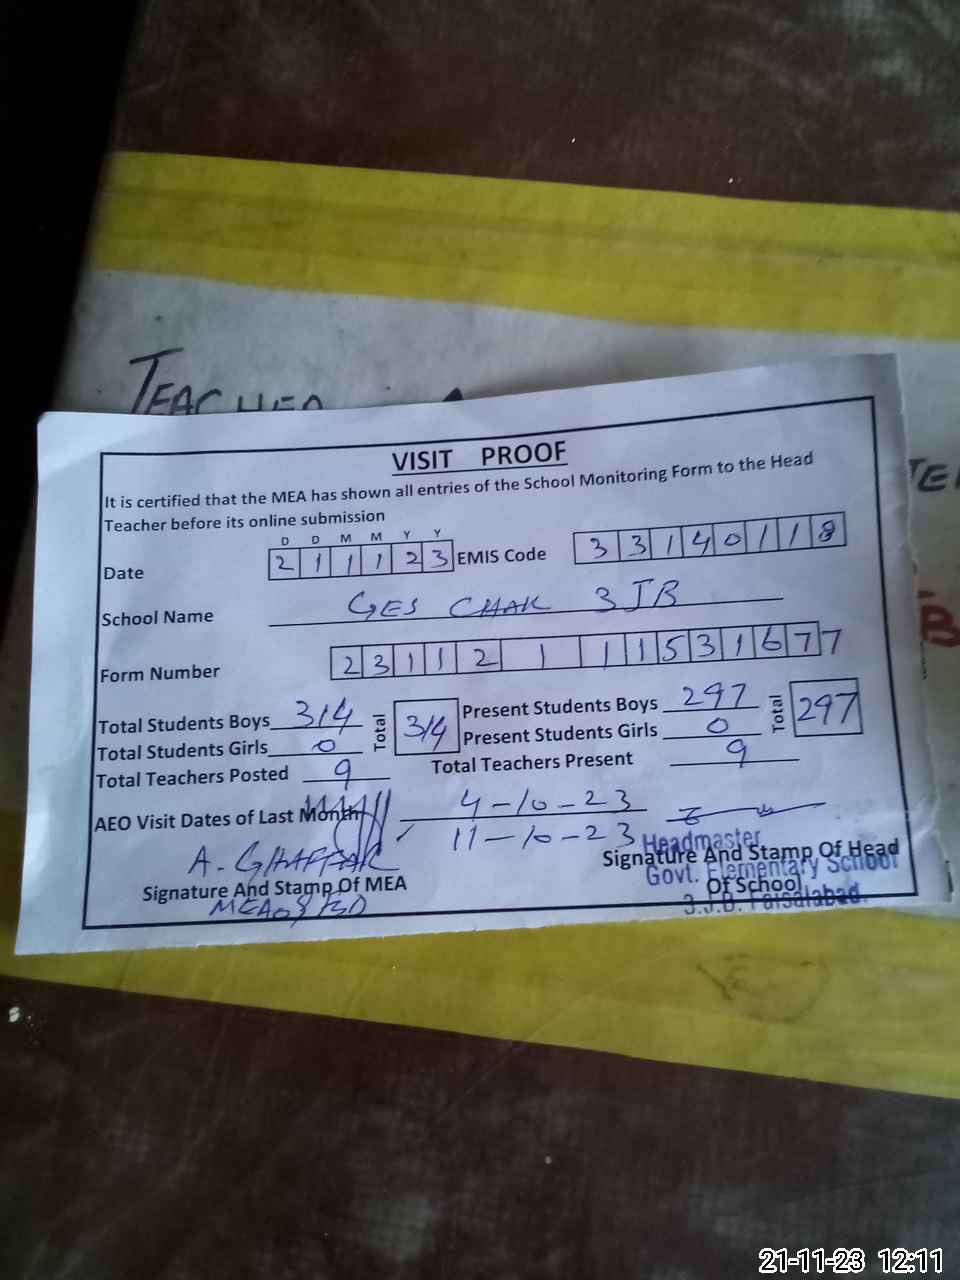 TEACHER
VISIT PROOF
It is certified that the MEA has shown all entries of the School Monitoring Form to the Head
Teacher before its online submission
D D M M Y Y
Date 2 1 1 1 2 3 EMIS Code 3 3 1 4 0 1 1 8
School Name GES CHAK 3JB
Form Number 2 3 1 1 2 1 1 1 5 3 1 6 7 7
Total Students Boys 314 Total 314 Present Students Boys 297 Total 297
Total Students Girls 0 Present Students Girls 0
Total Teachers Posted 9 Total Teachers Present 9
AEO Visit Dates of Last Month 4-10-23
11-10-23
A. GHAFFAR
Headmaster
Signature And Stamp Of MEA Signature And Stamp Of Head
Govt. Elementary School
Of School
3.J.B. Faisalabad.
21-11-23 12:11